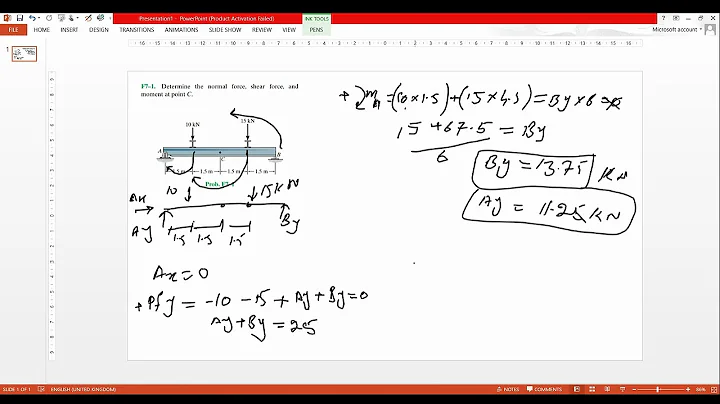 Presentation1 - PowerPoint (Product Activation Failed)
INK TOOLS
FILE HOME INSERT DESIGN TRANSITIONS ANIMATIONS SLIDE SHOW REVIEW VIEW PENS
Microsoft account
1
F7–1. Determine the normal force, shear force, and
moment at point C.
10 kN 15 kN
A C B
1.5 m 1.5 m 1.5 m
Prob. F7–1
10 15KN
Ax
Ay By
1.5 1.5 1.5
Ax=0
+ Fy = -10 -15 + Ay + By=0
Ay+By = 25
+ ΣMA = (10×1.5)+(15×4.5)=By×6=
15+67.5 = By
6
By = 13.75 KN
Ay = 11.25KN
SLIDE 1 OF 1 ENGLISH (UNITED KINGDOM) NOTES COMMENTS 86%